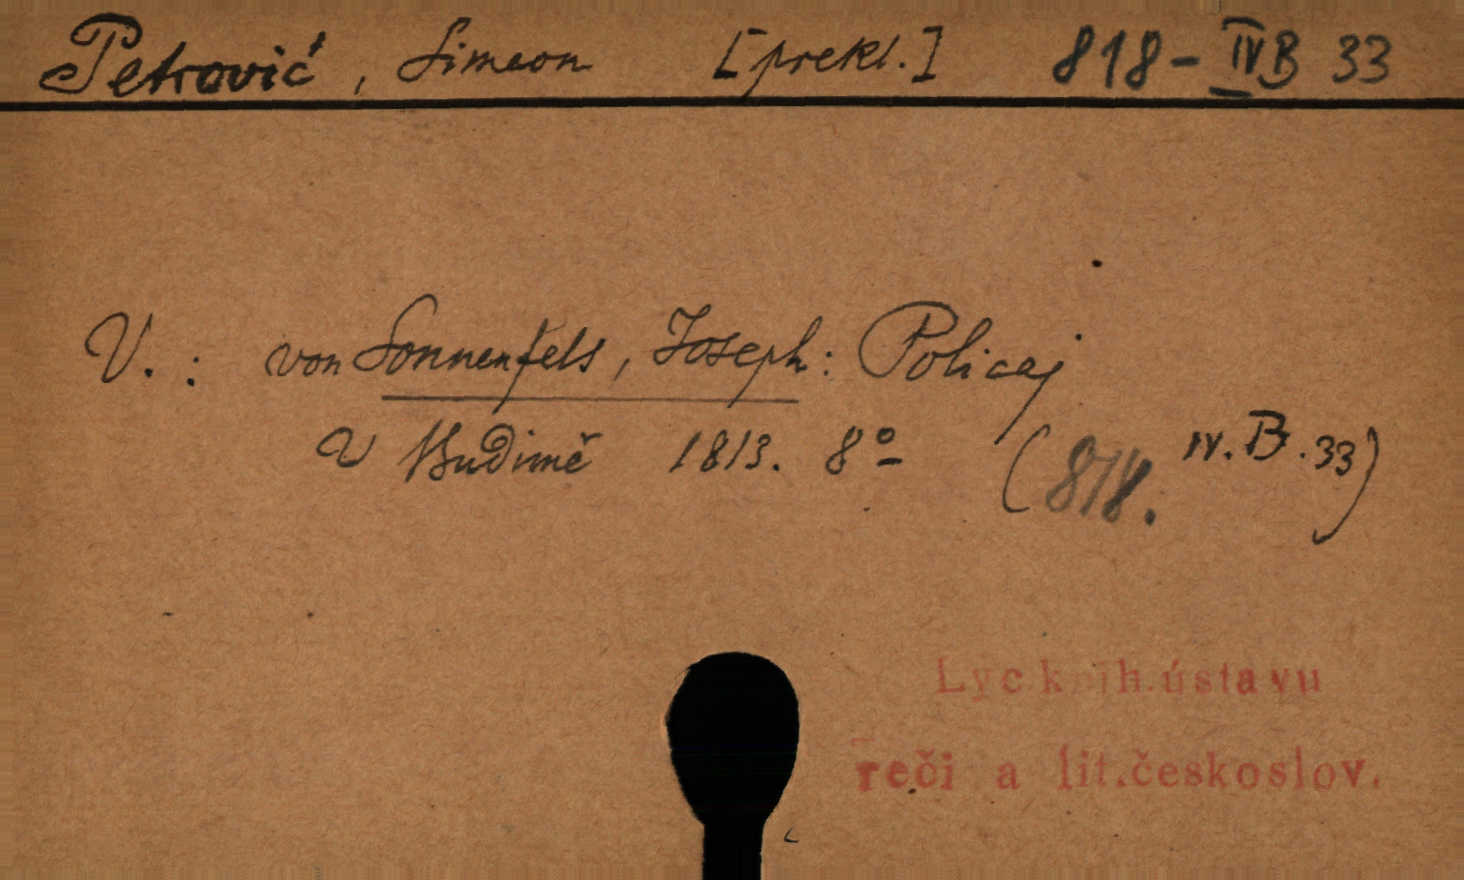 Petrović, Simeon [prekl.] 818-IVB 33
V.: von Sonnenfels, Joseph: Policaj
V Budimě 1813. 8º (818. IV.B.33)
Lyc knih. ústavu
reči a lit.českoslov.